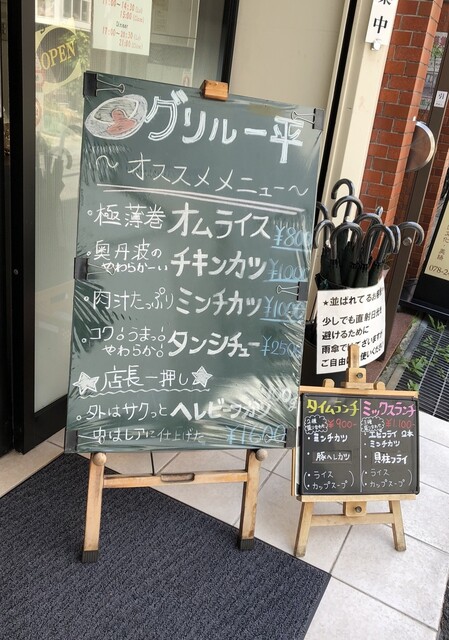 OPEN
Dinner
集中
グリル一平
～オススメメニュー～
・極薄巻オムライス ¥800
・奥丹波の
やわらかーい チキンカツ ¥1,000
・肉汁たっぷり ミンチカツ
・コク。うまっ!
やわらか。 タンシチュー ¥250
☆店長一押し☆
・外はサクっと ヘレビーフカツ
中はレアに仕上げた ¥1600
★並ばれてるお客様
少しでも直射日光を
避けるために
雨傘で
ご自由に使いくださ
078-2
タイムランチ
¥900-
・ミンチカツ
・豚ヘレカツ
(・ライス
・カップスープ)
ミックスランチ
¥1,100-
・エビフライ 2本
・ミンチカツ
・貝柱フライ
(・ライス
・カップスープ)